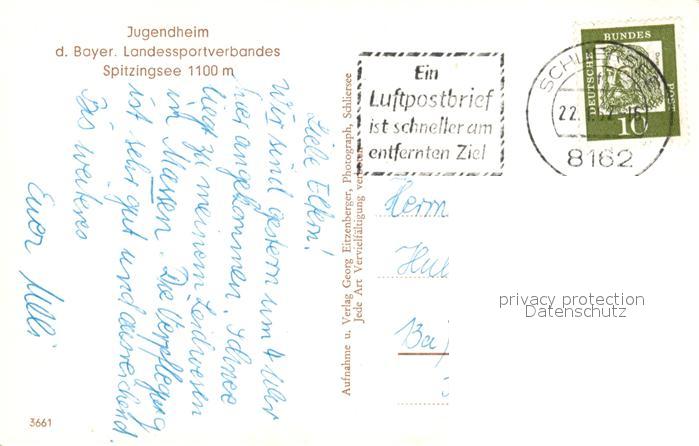 Jugendheim
d. Bayer. Landessportverbandes
Spitzingsee 1100 m
Liebe Eltern!
Wir sind gestern um 4 Uhr
hier angekommen. Schnee
liegt zu meinem Leidwesen
in Massen. Die Verpflegung
ist sehr gut und ausreichend.
Bis weiteres
Euer Ulli
3661
Aufnahme u. Verlag Georg Eitzenberger, Photograph, Schliersee
Jede Art Vervielfältigung verboten
Ein
Luftpostbrief
ist schneller am
entfernten Ziel
SCHLIERSEE
22.
8162
DEUTSCHE BUNDESPOST
10
Herrn
Hul
Ba
privacy protection
Datenschutz